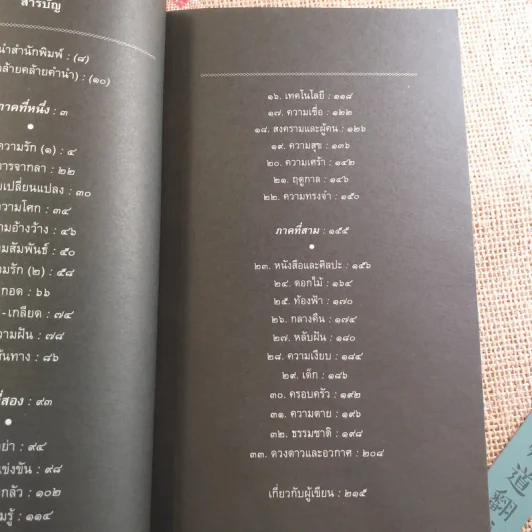 สารบัญ
นำสำนักพิมพ์ : (๘)
คล้ายคล้ายคำนำ) : (๑๐)
ภาคที่หนึ่ง : ๓
ความรัก (๑) : ๔
การจากลา : ๒๒
เปลี่ยนแปลง : ๓๐
ความโศก : ๓๔
อ้างว้าง : ๔๖
สัมพันธ์ : ๕๐
รัก (๒) : ๕๘
กอด : ๖๖
-เกลียด : ๗๔
ความฝัน : ๗๘
ทาง : ๘๖
ที่สอง : ๙๓
ย่า : ๙๔
แข่งขัน : ๙๘
กลัว : ๑๐๒
รู้ : ๑๑๔
๑๖. เทคโนโลยี : ๑๑๘
๑๗. ความเชื่อ : ๑๒๒
๑๘. สงครามและผู้คน : ๑๒๖
๑๙. ความสุข : ๑๓๖
๒๐. ความเศร้า : ๑๔๒
๒๑. ฤดูกาล : ๑๔๖
๒๒. ความทรงจำ : ๑๕๐
ภาคที่สาม : ๑๕๕
๒๓. หนังสือและศิลปะ : ๑๕๖
๒๔. ดอกไม้ : ๑๖๔
๒๕. ท้องฟ้า : ๑๗๐
๒๖. กลางคืน : ๑๗๔
๒๗. หลับฝัน : ๑๘๐
๒๘. ความเงียบ : ๑๘๔
๒๙. เด็ก : ๑๘๖
๓๐. ครอบครัว : ๑๙๒
๓๑. ความตาย : ๑๙๖
๓๒. ธรรมชาติ : ๑๙๘
๓๓. ดวงดาวและอวกาศ : ๒๐๘
เกี่ยวกับผู้เขียน : ๒๑๕
道
翻